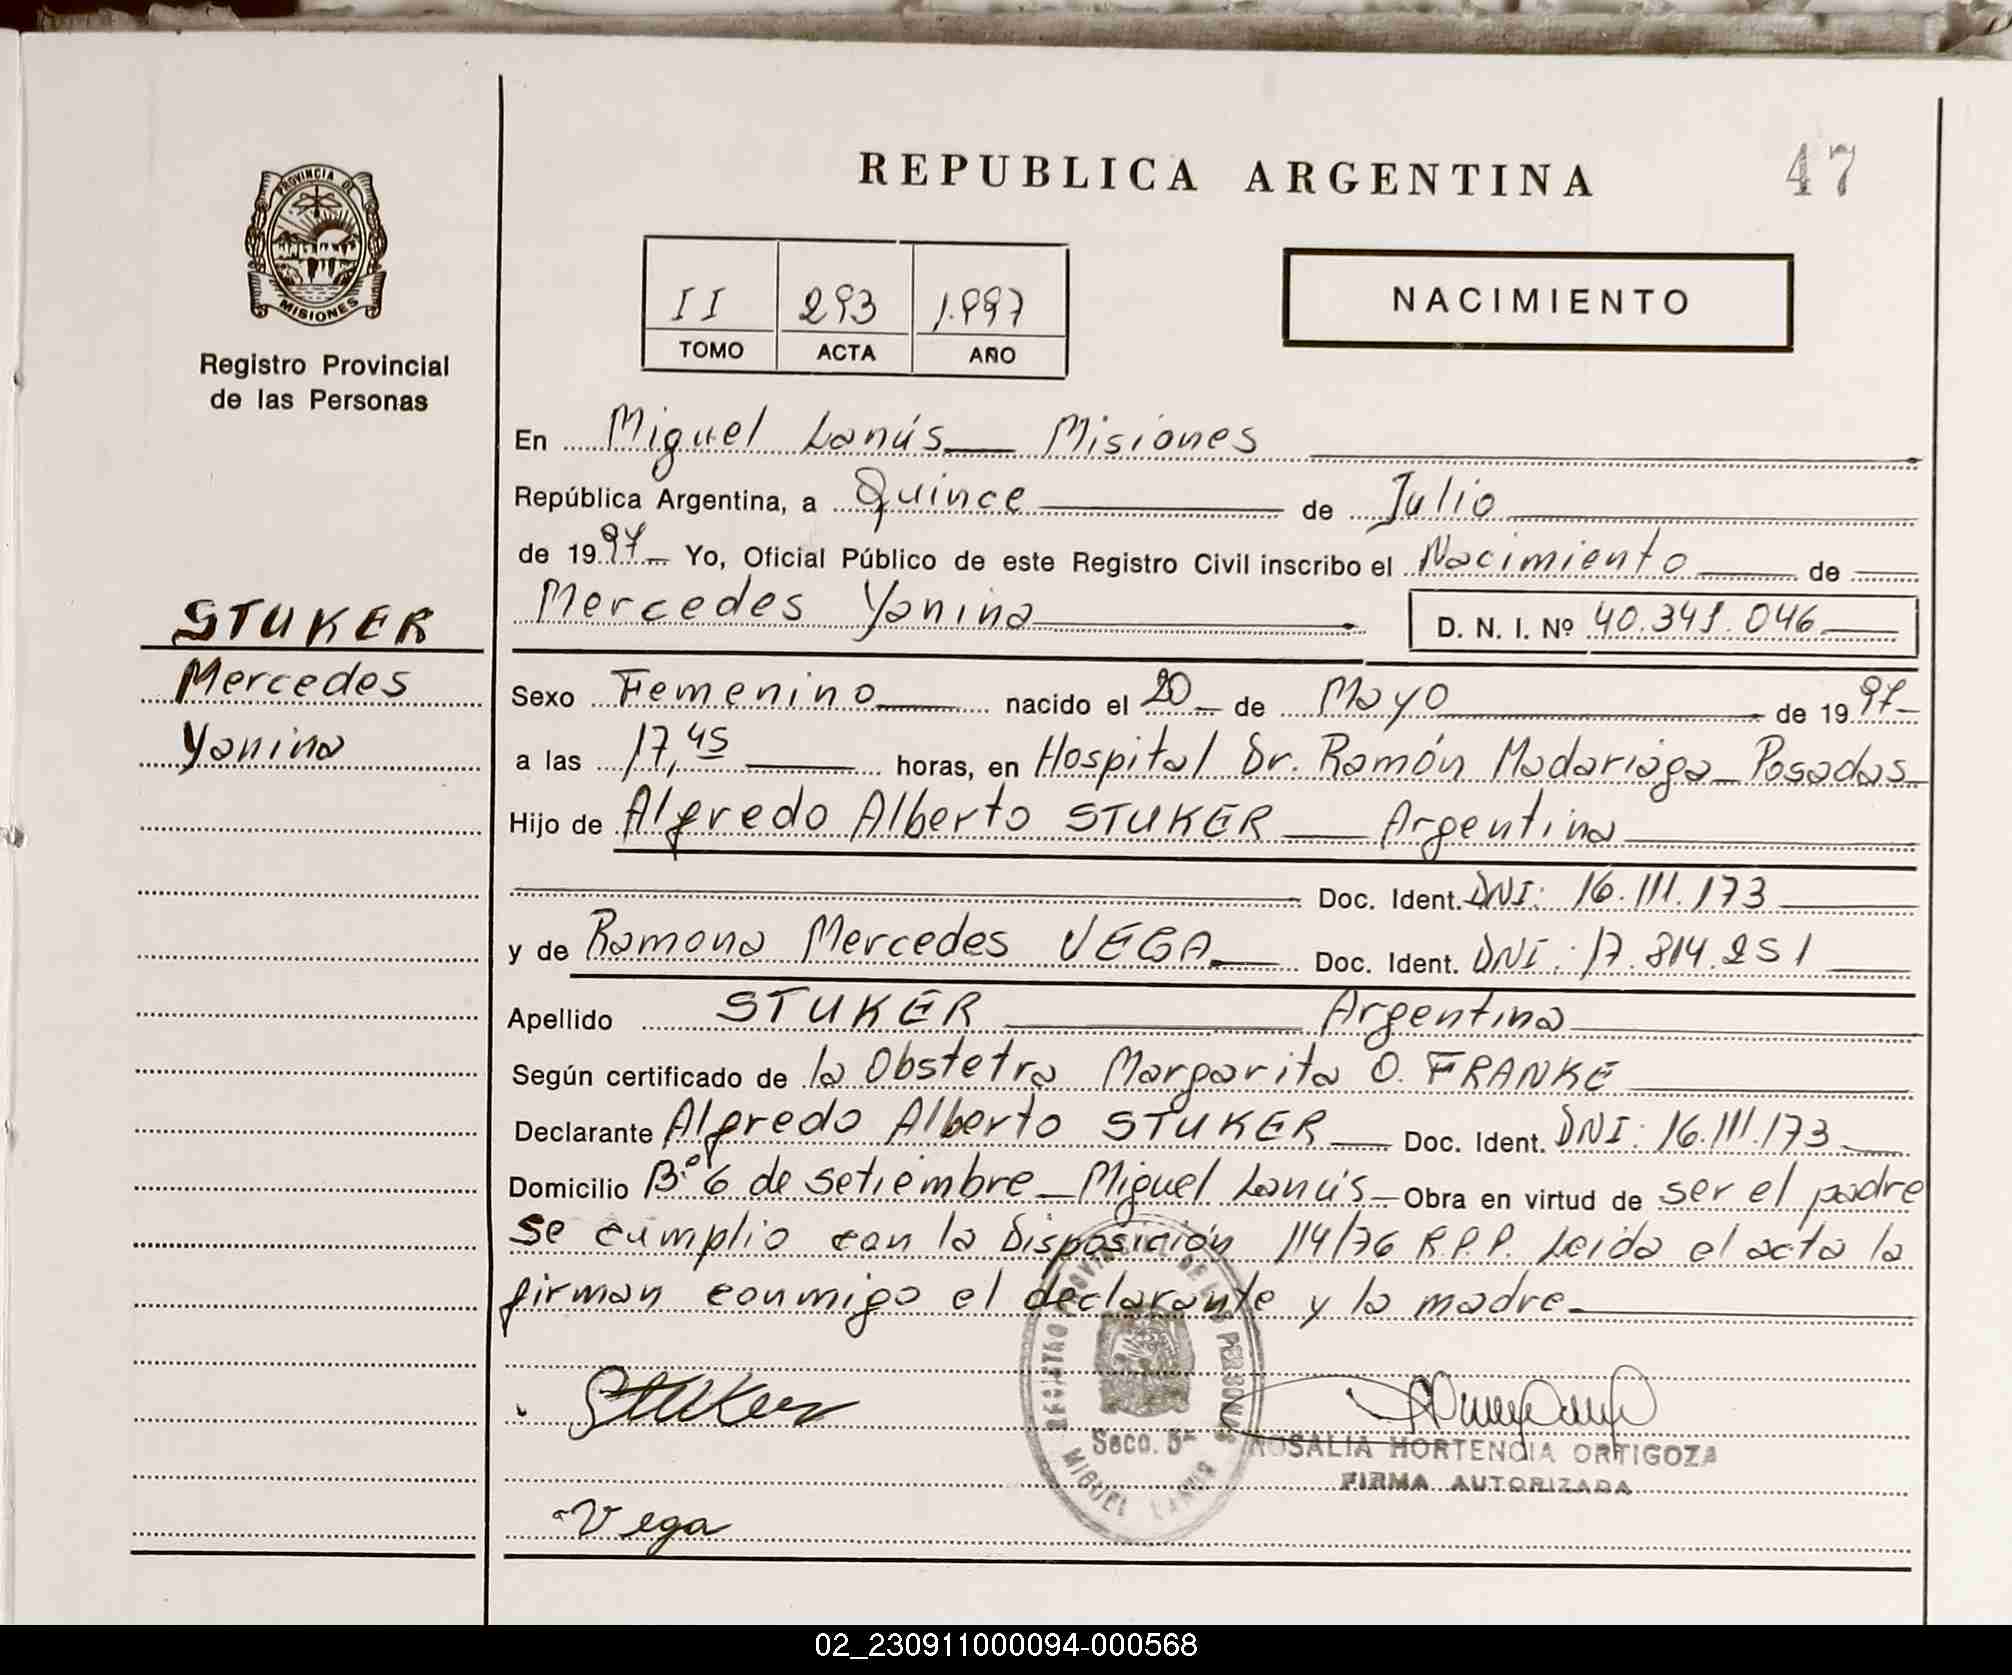 REPUBLICA ARGENTINA
47
PROVINCIA DE
MISIONES
Registro Provincial
de las Personas
II 293 1.997
TOMO ACTA AÑO
NACIMIENTO
En Miguel Lanús Misiones
República Argentina, a Quince de Julio
de 1997 Yo, Oficial Público de este Registro Civil inscribo el Nacimiento de
Mercedes Yanina D. N. I. Nº 40.341.046
STUKER
Mercedes
Yanina
Sexo Femenino nacido el 20 de Mayo de 1997
a las 17,45 horas, en Hospital Dr. Ramón Madariaga Posadas
Hijo de Alfredo Alberto STUKER Argentina
Doc. Ident. DNI: 16.111.173
y de Ramona Mercedes VEGA Doc. Ident. DNI: 17.814.251
Apellido STUKER Argentina
Según certificado de la Obstetra Margarita O. FRANKE
Declarante Alfredo Alberto STUKER Doc. Ident. DNI: 16.111.173
Domicilio Bº 6 de setiembre Miguel Lanús Obra en virtud de ser el padre
se cumplio con la Disposición 114/76 R.P.P. Leida el acta la
firman conmigo el declarante y la madre
Stuker
REGISTRO PROVINCIAL DE LAS PERSONAS
Secc. 5ª
MIGUEL LANUS
ROSALIA HORTENCIA ORTIGOZA
FIRMA AUTORIZADA
Vega
02_230911000094-000568